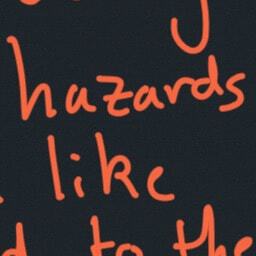 hazards
like
to the